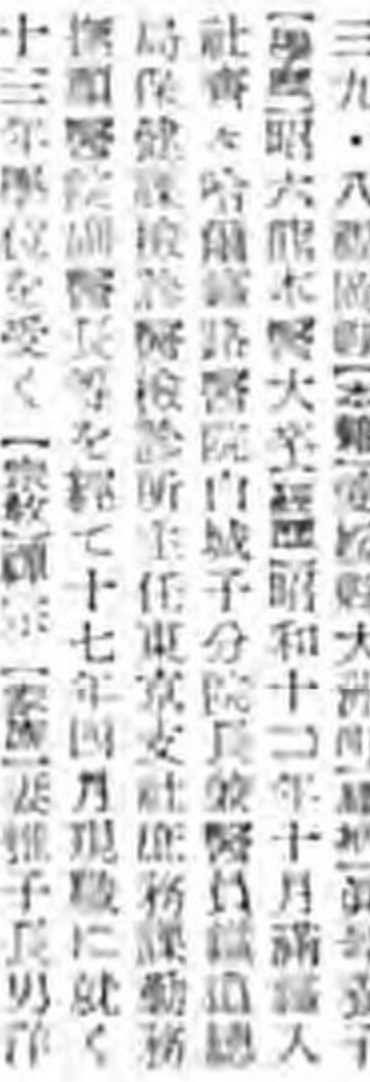 三九・八【本籍】愛媛縣大洲町
【學歷】昭六熊本醫大卒【經歷】昭和十二年十月滿鐵入
社齊々哈爾鐵路醫院白城子分院長兼醫員鐵道總
局保健課檢診醫檢診所主任東京支社庶務課勤務
撫順醫院副醫長等を經て十七年四月現職に就く
十三年學位を受く【宗敎】禪宗【家族】妻雅子長男洋